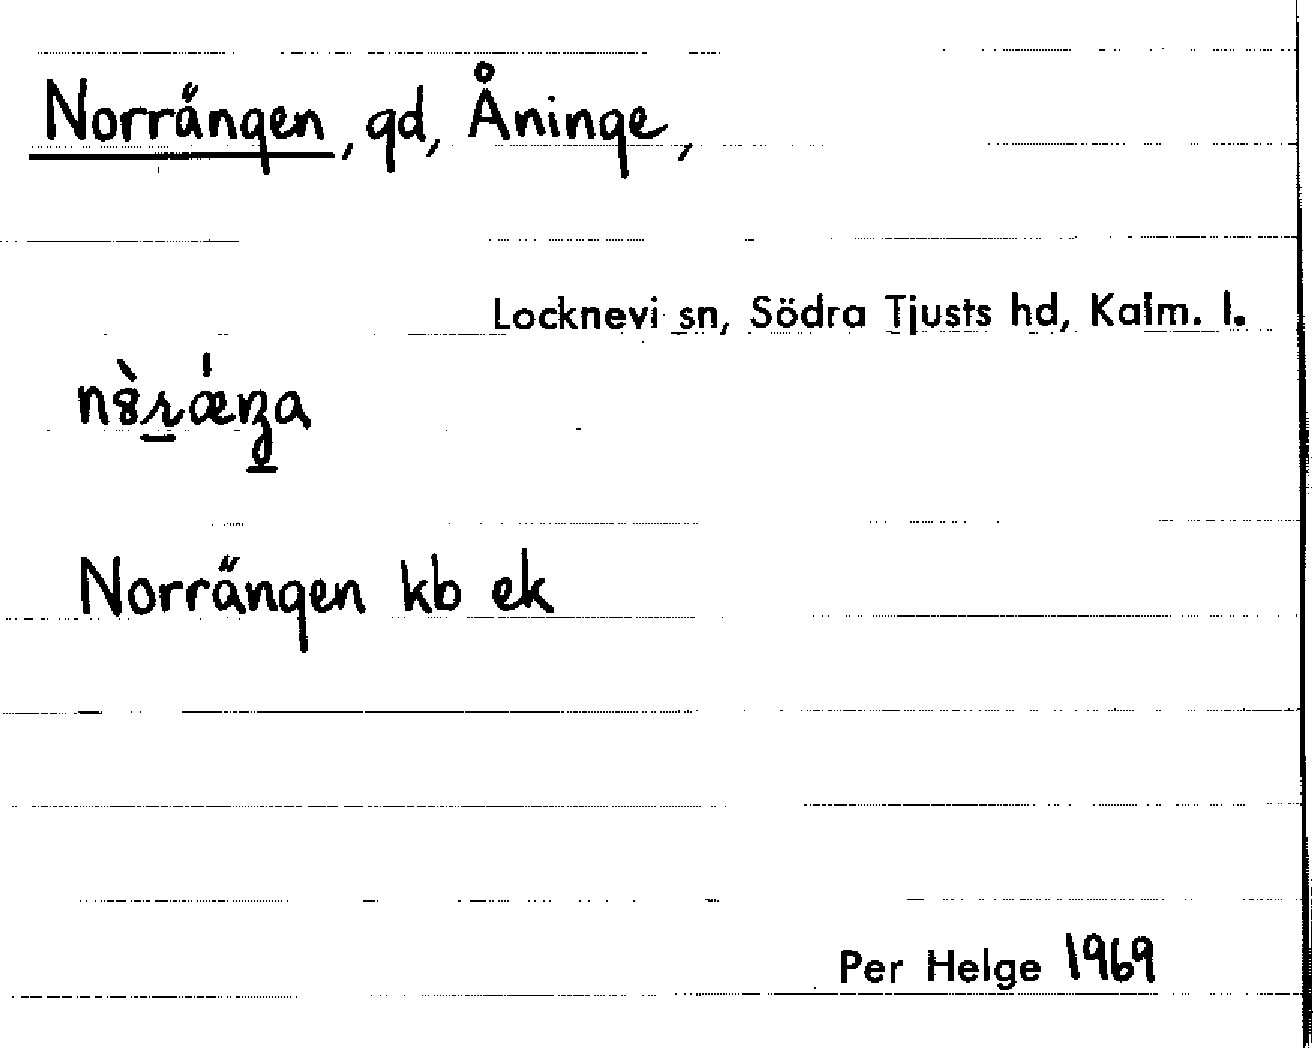 Norrängen, gd, Åninge,
Locknevi sn, Södra Tjusts hd, Kalm. l.
Norrängen kb ek
Per Helge 1969